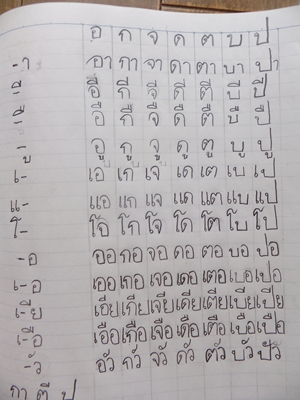 อ ก จ ด ต บ ป
-า อา กา จา ดา ตา บา ปา
-ี อี กี จี ดี ตี บี ปี
-ือ อือ กือ จือ ดือ ตือ บือ ปือ
-ู อู กู จู ดู ตู บู ปู
เ- เอ เก เจ เด เต เบ เป
แ- แอ แก แจ แด แต แบ แป
โ- โอ โก โจ โด โต โบ โป
-อ ออ กอ จอ ดอ ตอ บอ ปอ
เ-อ เออ เกอ เจอ เดอ เตอ เบอ เปอ
เ-ีย เอีย เกีย เจีย เดีย เตีย เบีย เปีย
เ-ือ เอือ เกือ เจือ เดือ เตือ เบือ เปือ
-ัว อัว กัว จัว ดัว ตัว บัว ปัว
กา ตี ป